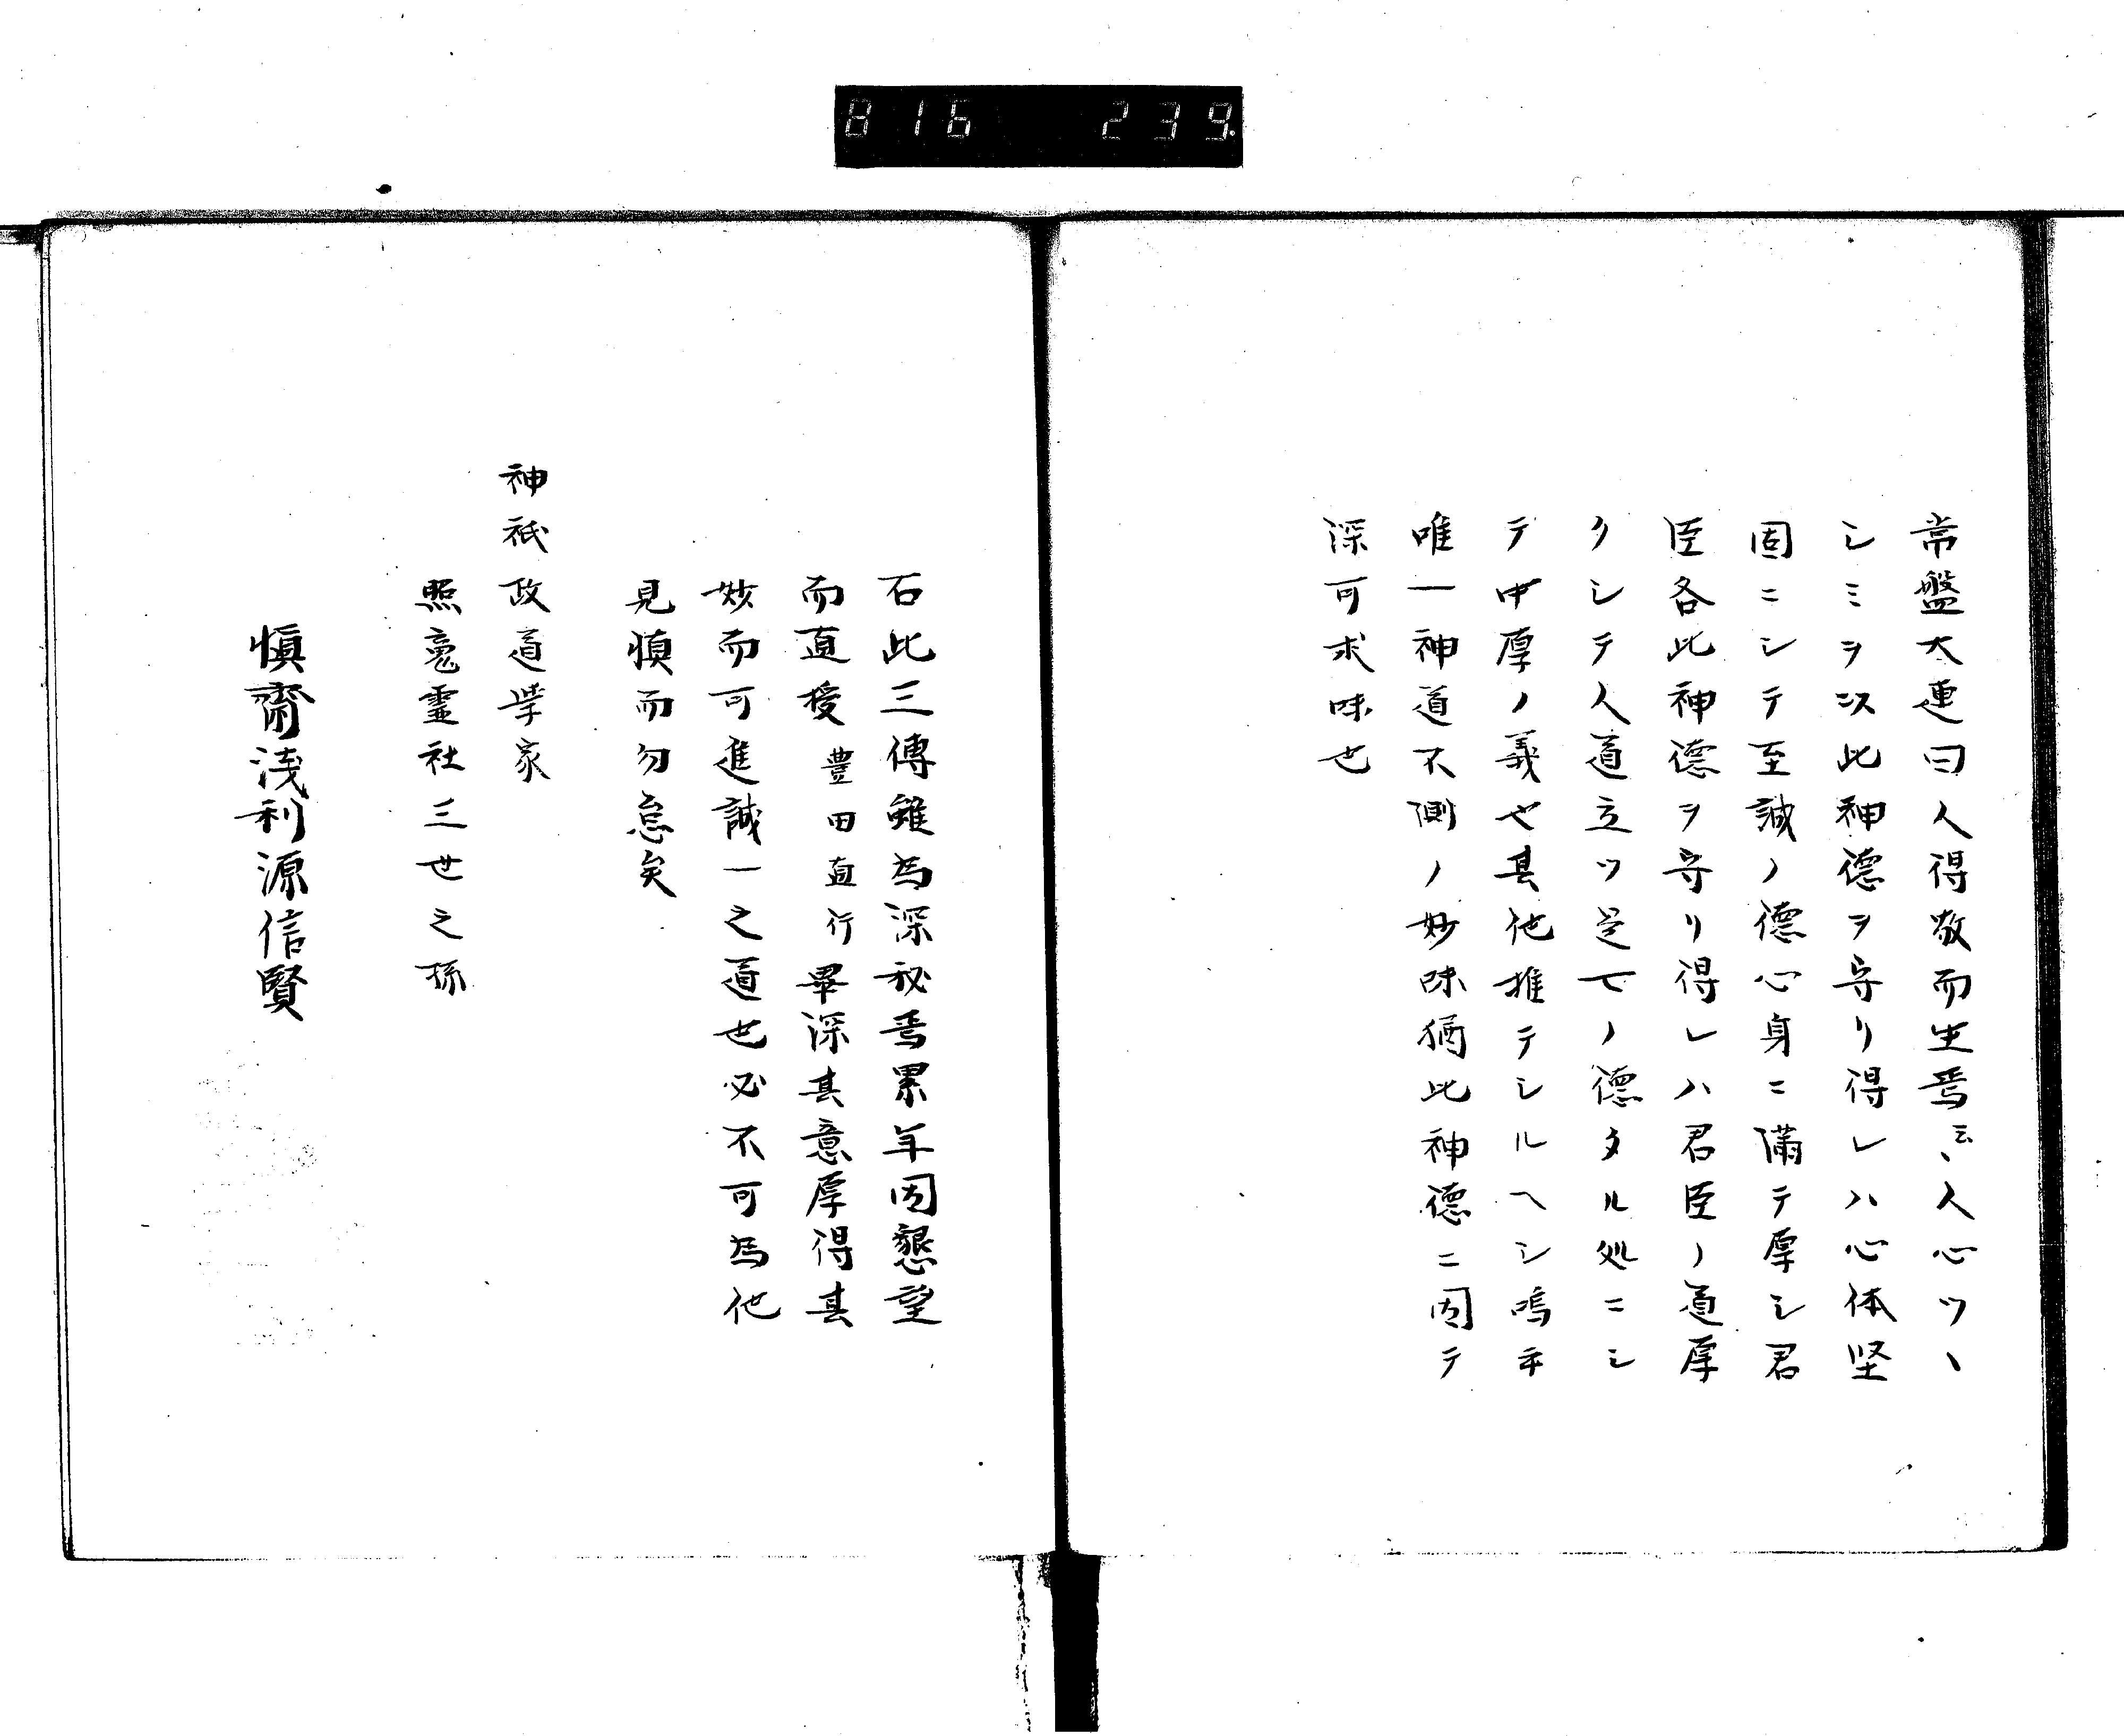 816 239.
常盤大連曰人得敬而生焉云〻人心ツヽ
シミヲ以此神德ヲ守リ得レハ心体堅
固ニシテ至誠ノ德心身ニ備テ厚シ君
臣各此神德ヲ守リ得レハ君臣ノ道厚
クシテ人道立ツ是モノ德タル処ニシ
テ中厚ノ義也其他推テシルヘシ嗚乎
唯一神道不測ノ妙味猶此神德ニ因テ
深可求味也
右此三傳雖為深秘焉累年因懇望
而直授豊田直行畢深其意厚得其
妙而可進誠一之道也必不可為他
見慎而勿怠矣
神祇政道学家
照亮靈社三世之孫
慎齋浅利源信賢